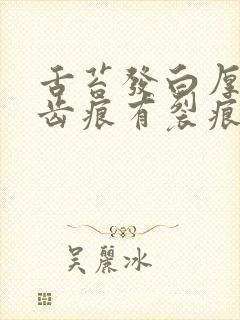 舌苔發白厚
齒痕有裂痕
吳麗冰